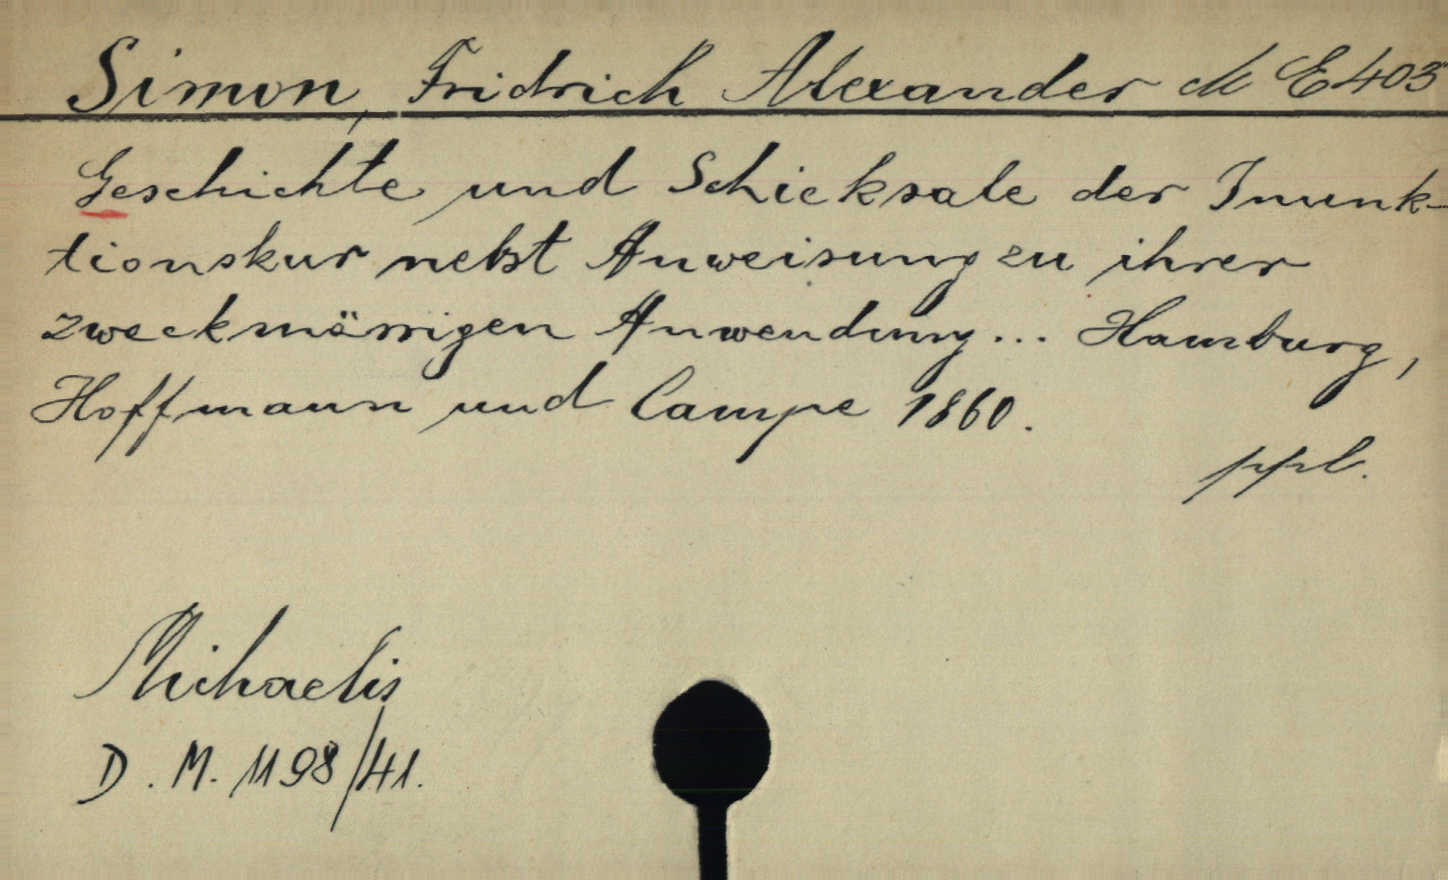 Simon, Fridrich Alexander M E 403
Geschichte und Schicksale der Inunk-
tionskur nebst Anweisung zu ihrer
zweckmässigen Anwendung... Hamburg,
Hoffmann und Campe 1860.
ppl.
Michaelis
D. M. 1198/41.